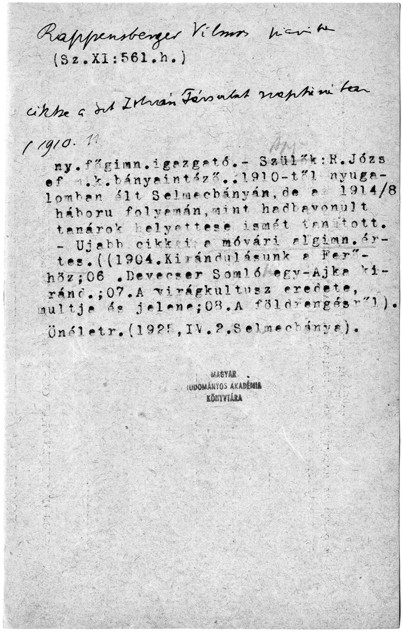 Rappensberger Vilmos piarista
(Sz.XI:561.h.)
cikke a Szt István Társulat naptárában
(1910.
ny.főgimn.igazgató.- Szülők:R.Józs
ef m.k.bányaintéző.:1910-től nyuga-
lomban élt Selmecbányán,de az 1914/8
háboru folyamán,mint hadbavonult
tanárok helyettese ismét tanított.
- Ujabb cikkei a móvári algimn.ér-
tes.((1904.Kirándulásunk a Fer*-
höz;06 .Devecser Somló egy-Ajka ki-
ránd.;07.A virágkultusz eredete,
multja és jelene;08.A földrengésről).
Önéletr.(1925,IV.2.Selmecbánya).
MAGYAR
TUDOMÁNYOS AKADÉMIA
KÖNYVTÁRA